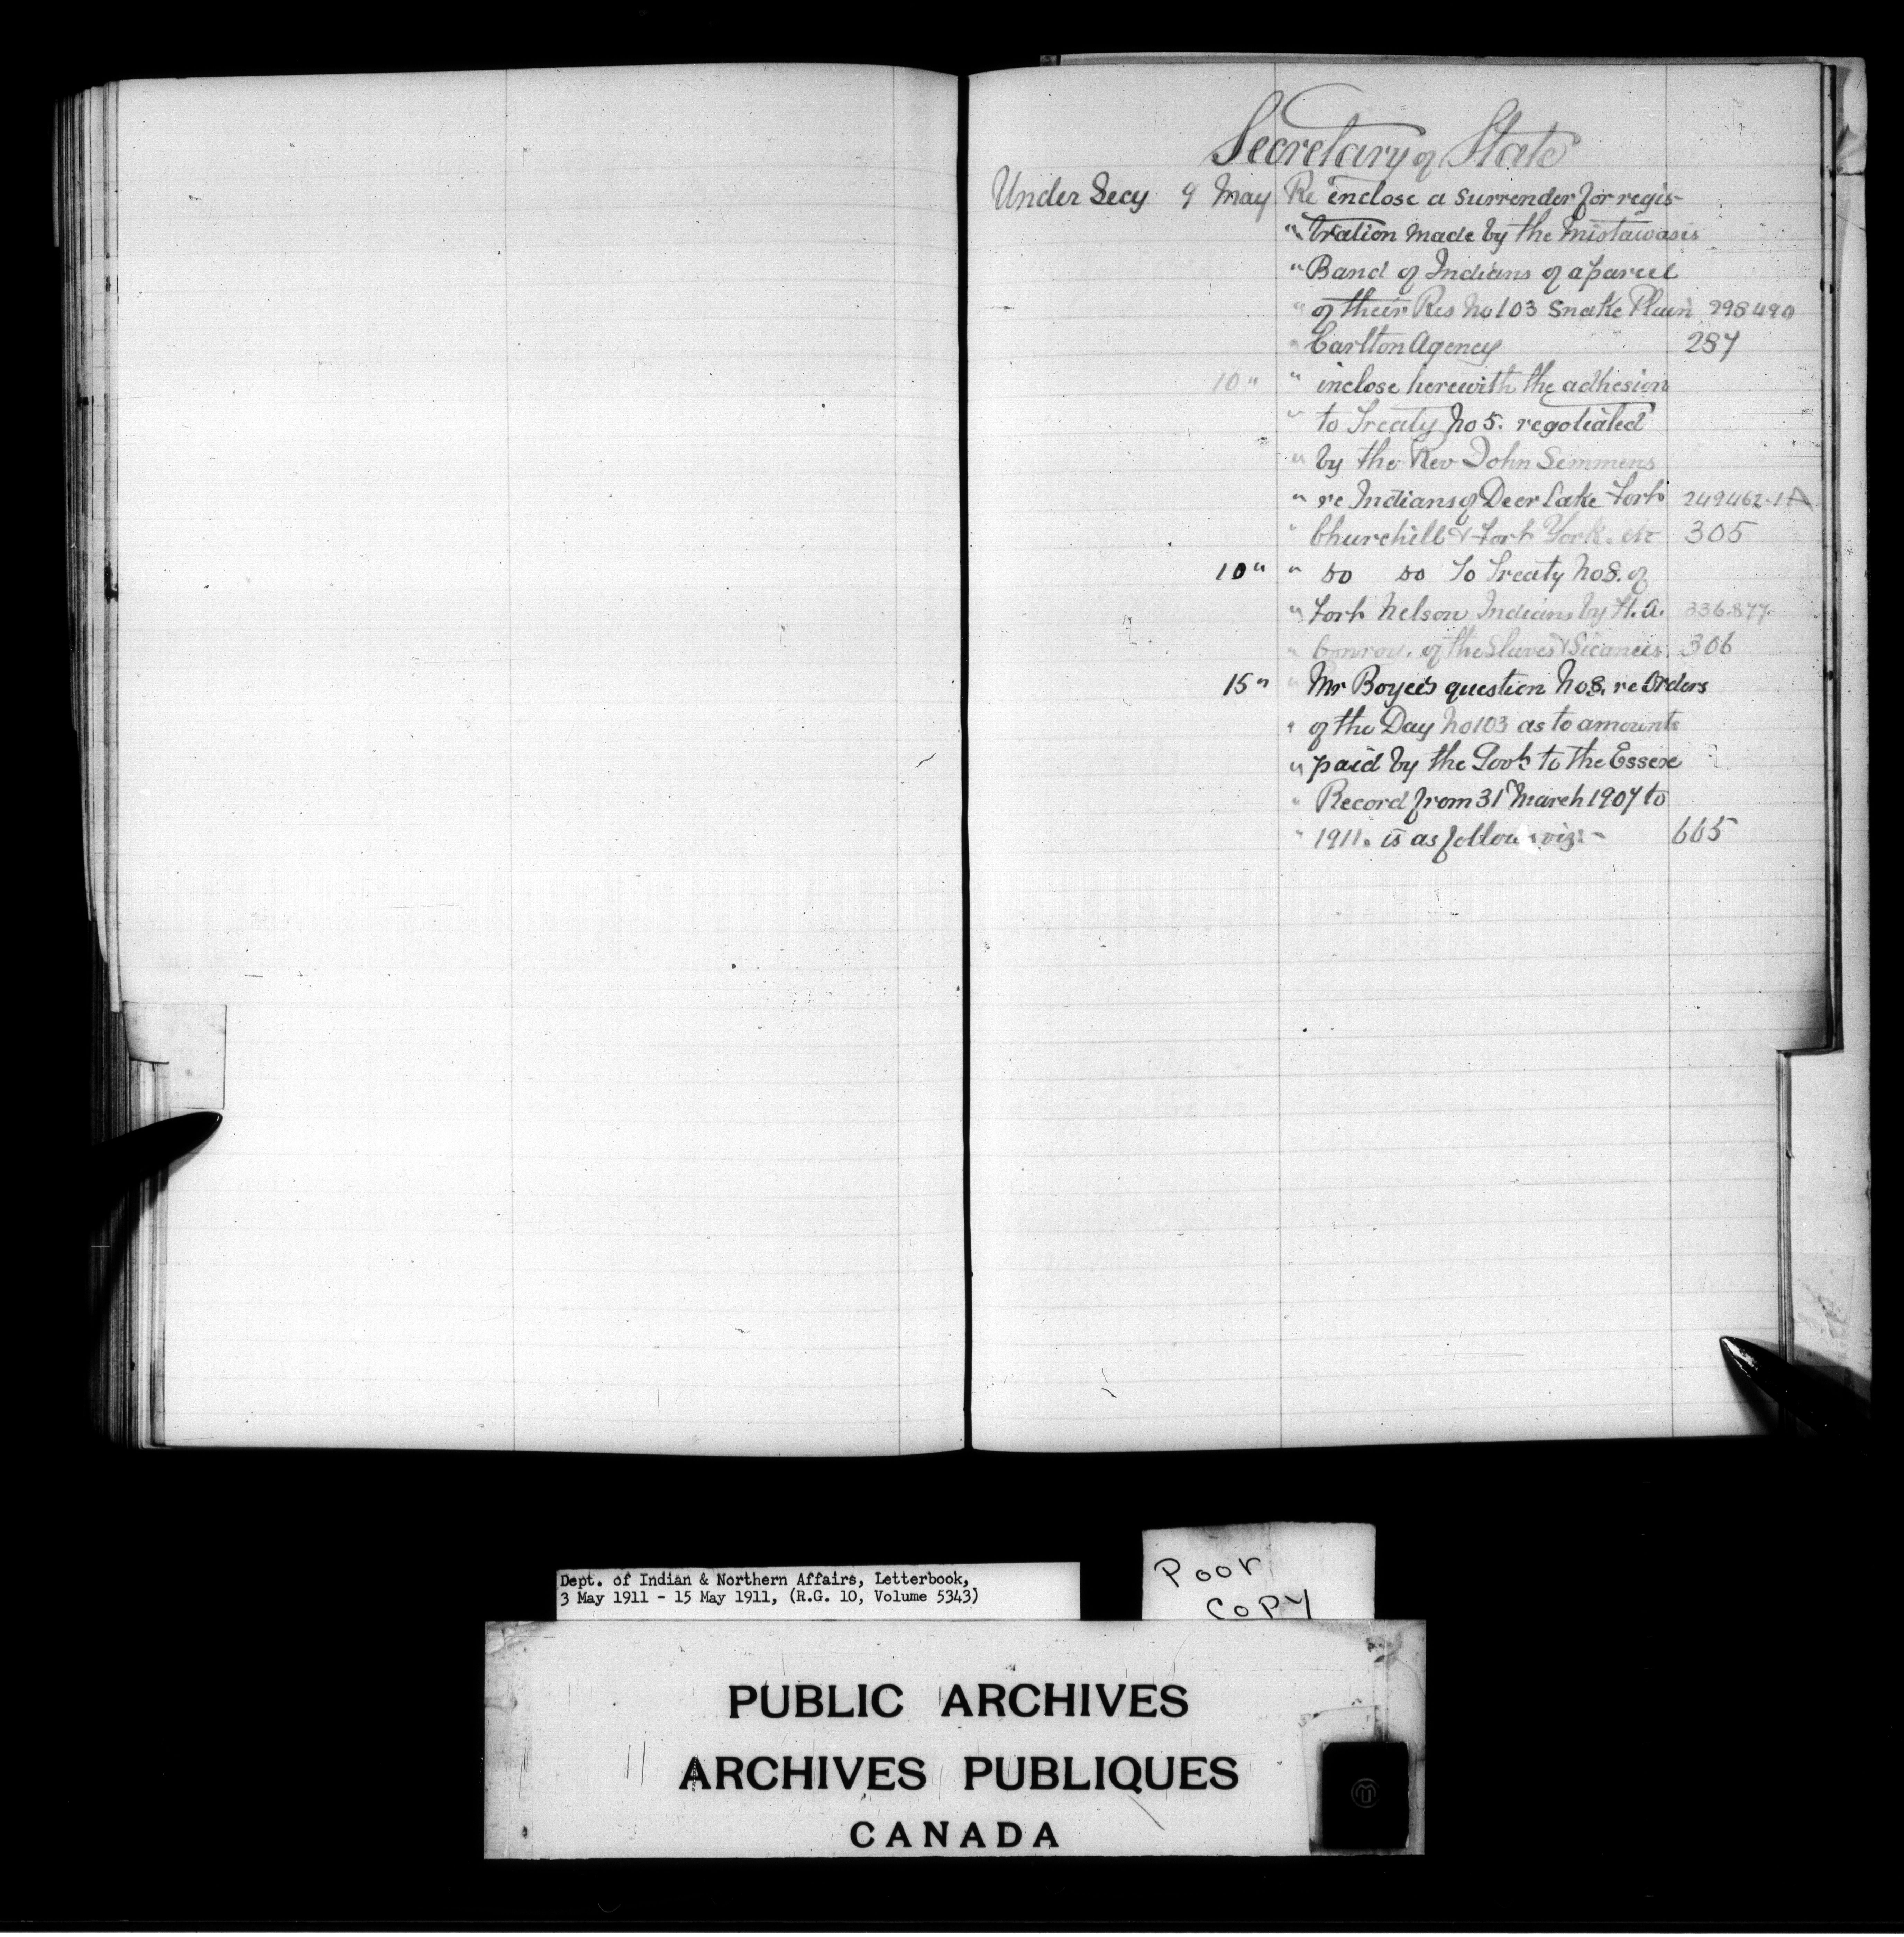 Secretary of State
Under Secy 9 May Re enclose a surrender for regis-
" tration made by the Mistawasis
" Band of Indians of a parcel
" of their Res No 103 Snake Plain 298490
" Carlton Agency 287
10 " " inclose herewith the adhesion
" to Treaty No 5. negotiated
" by the Rev John Semmens
" re Indians of Deer Lake Fort 249462-1A
" Churchill & Fort York. etc 305
10 " " do do to Treaty No 8. of
" Fort Nelson Indians by H.A. 336.877.
" Conroy. of the Slaves & Sicanees. 306
15 " " Mr Boyce's question No 8. re Orders
" of the Day No 103 as to amounts
" paid by the Govt to the Essex
" Record from 31 March 1907 to
" 1911. is as follows viz:- 665
Dept. of Indian & Northern Affairs, Letterbook,
3 May 1911 - 15 May 1911, (R.G. 10, Volume 5343)
Poor
Copy
PUBLIC ARCHIVES
ARCHIVES PUBLIQUES
CANADA